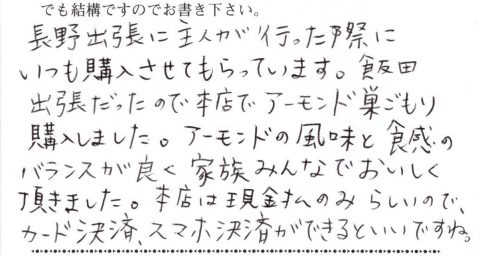 でも結構ですのでお書き下さい。
長野出張に主人が行った際に
いつも購入させてもらっています。飯田
出張だったので本店でアーモンド巣ごもり
購入しました。アーモンドの風味と食感の
バランスが良く家族みんなでおいしく
頂きました。本店は現金払のみらしいので、
カード決済、スマホ決済ができるといいですね。